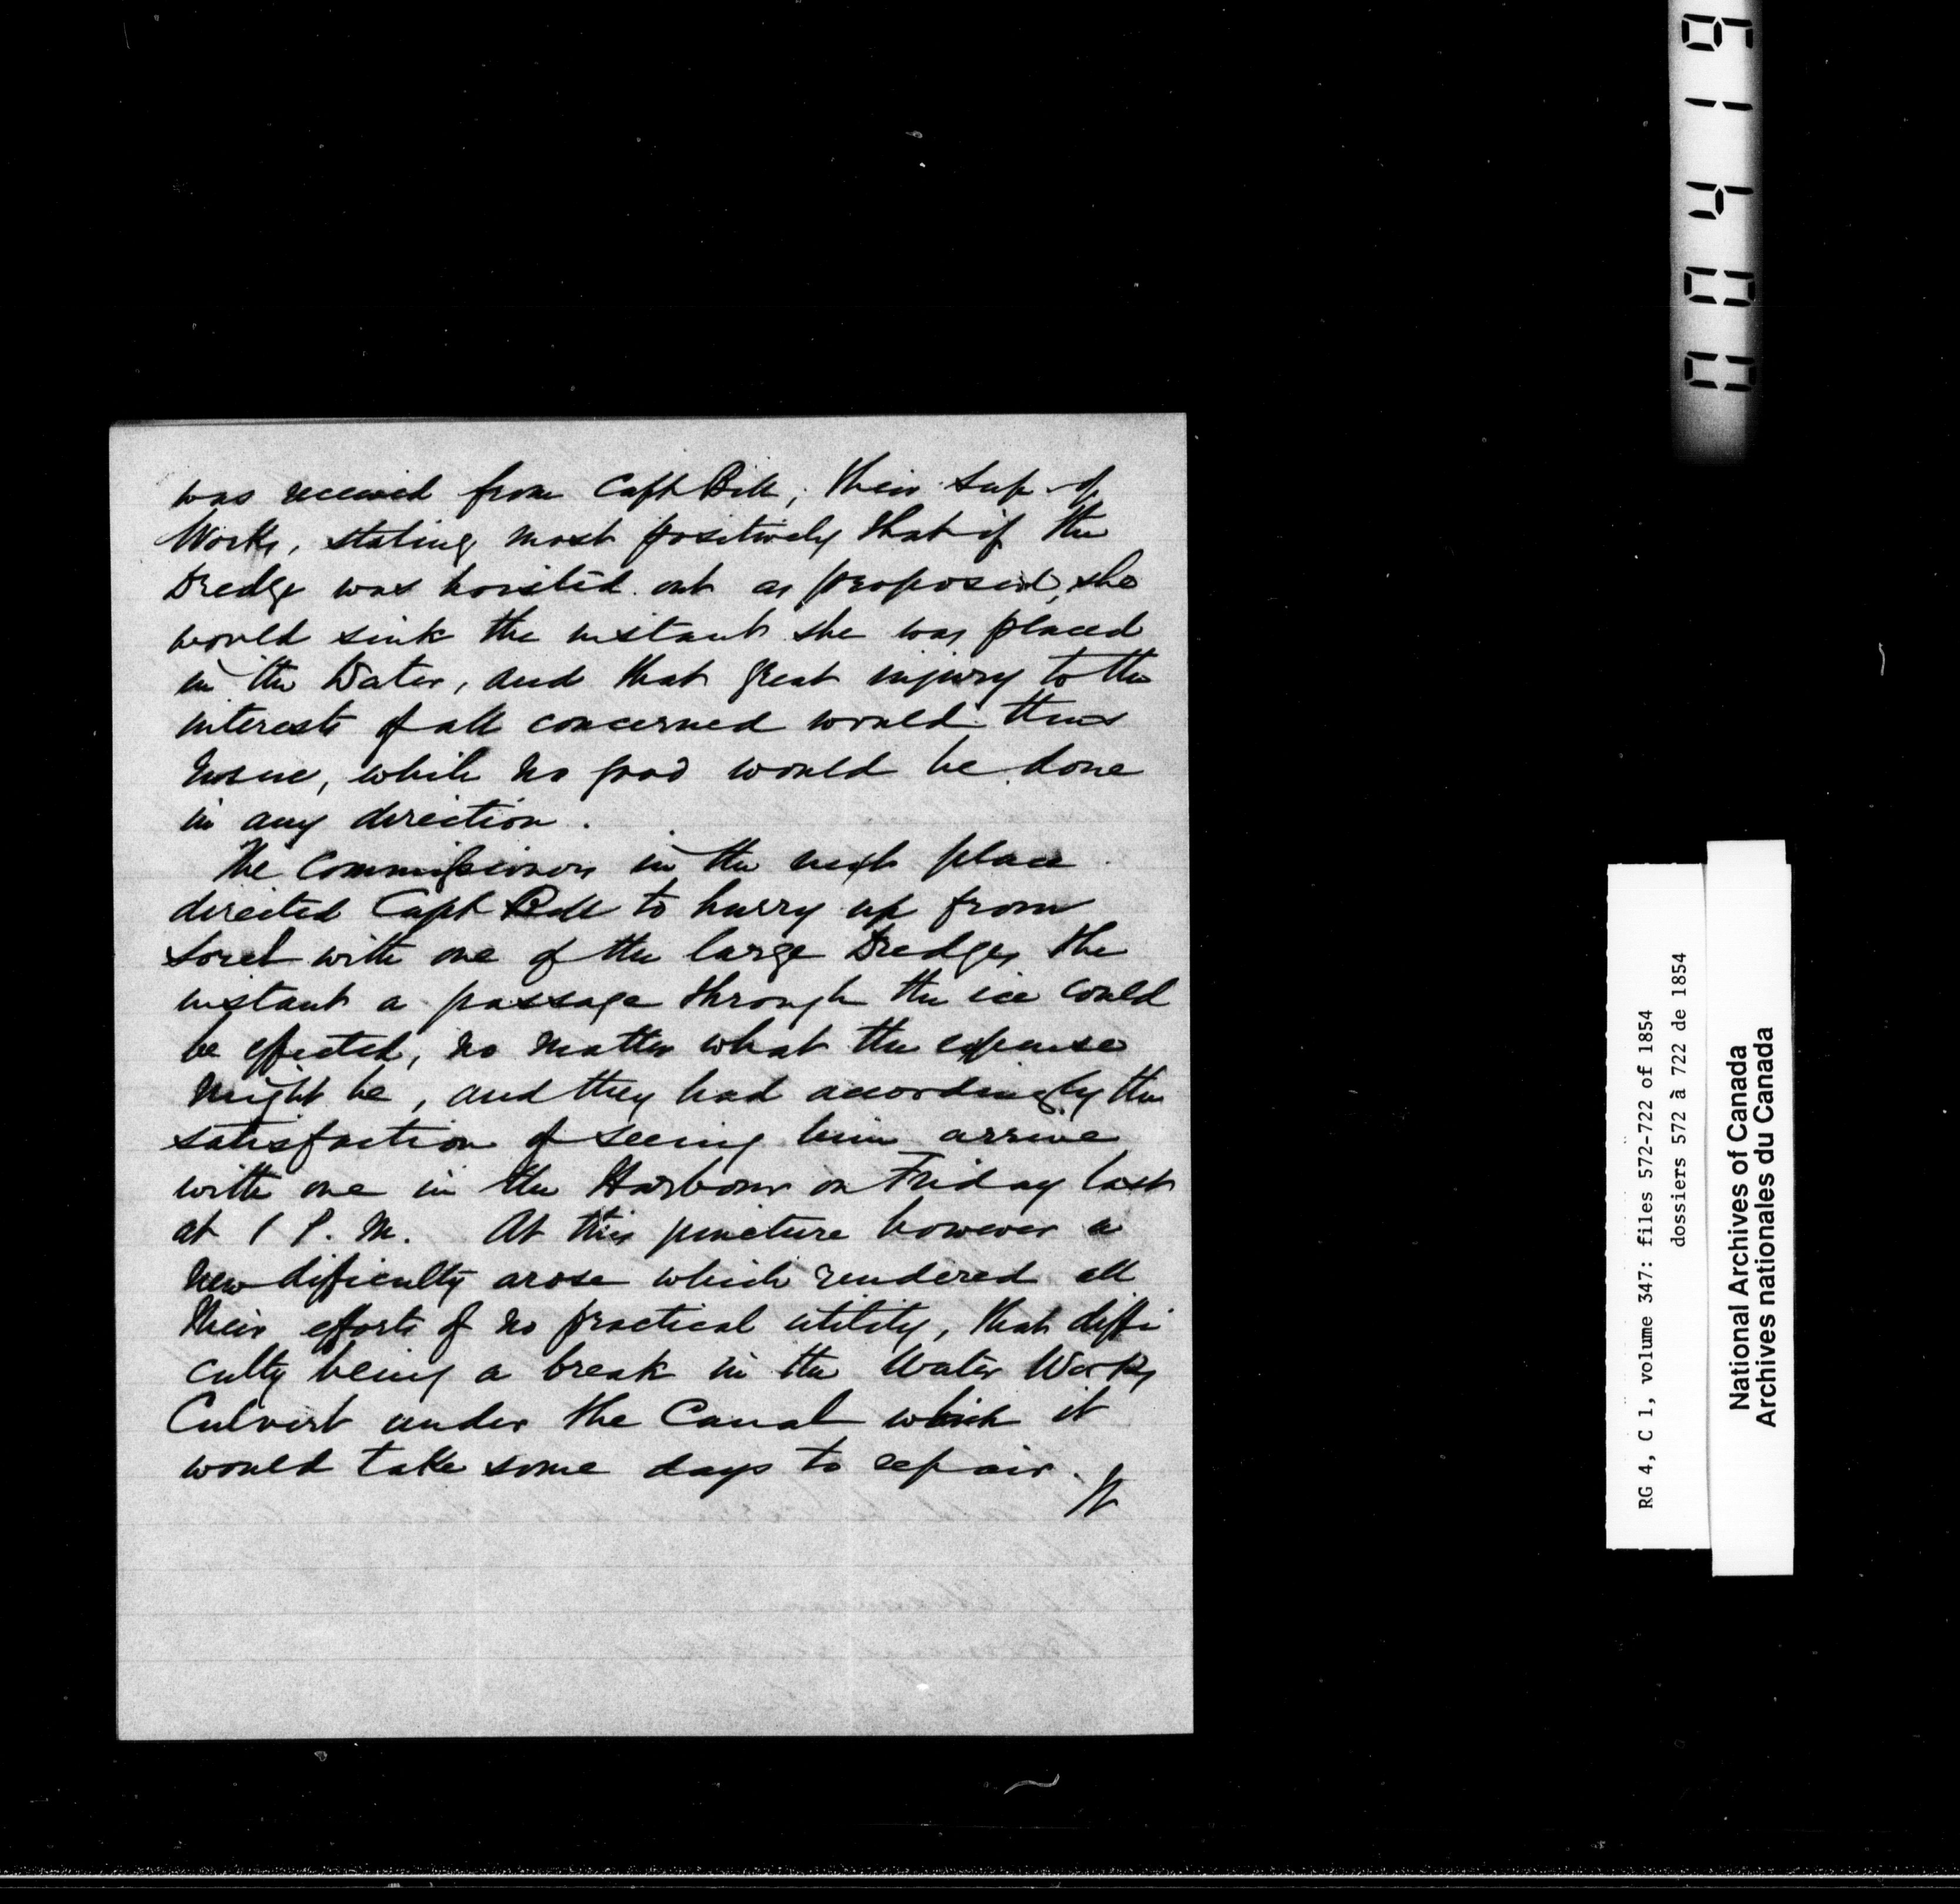 was received from Capt Bell, their Sup. of
Works, stating most positively that if the
Dredge was hoisted out as proposed, she
would sink the instant she was placed
in the Water, and that great injury to the
interests of all concerned would thus
ensue, while no good would be done
in any direction.
The Commissioners in the next place
directed Capt Bell to hurry up from
Sorel with one of the large Dredges the
instant a passage through the ice could
be effected, no matter what the expense
might be, and they had accordingly the
satisfaction of seeing him arrive
with one in the Harbour on Friday last
at 1 P. M. At this juncture however a
new difficulty arose which rendered all
their efforts of no practical utility, that diffi
culty being a break in the Water Works
Culvert under the Canal which it
would take some days to repair.
It
RG 4, C 1, volume 347: files 572-722 of 1854
dossiers 572 à 722 de 1854
National Archives of Canada
Archives nationales du Canada